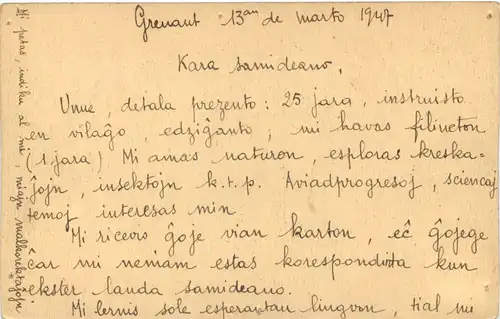 Grenaut 13an de marto 1947
Kara samideano,
Unue, detala prezento : 25 jara, instruisto
en vilaĝo, edziĝanto ; mi havas filineton
(1 jara) Mi amas naturon, esploras kreska-
ĵojn, insektojn k.t.p. Aviadprogresoj, sciencaj
temoj interesas min
Mi ricevis ĝoje vian karton, eĉ ĝojege
ĉar mi neniam estas korespondita kun
ekster landa samideano.
Mi lernis sole esperantan lingvon, tial mi
Mi petas, indiku al mi, miajn malkorektaĵojn